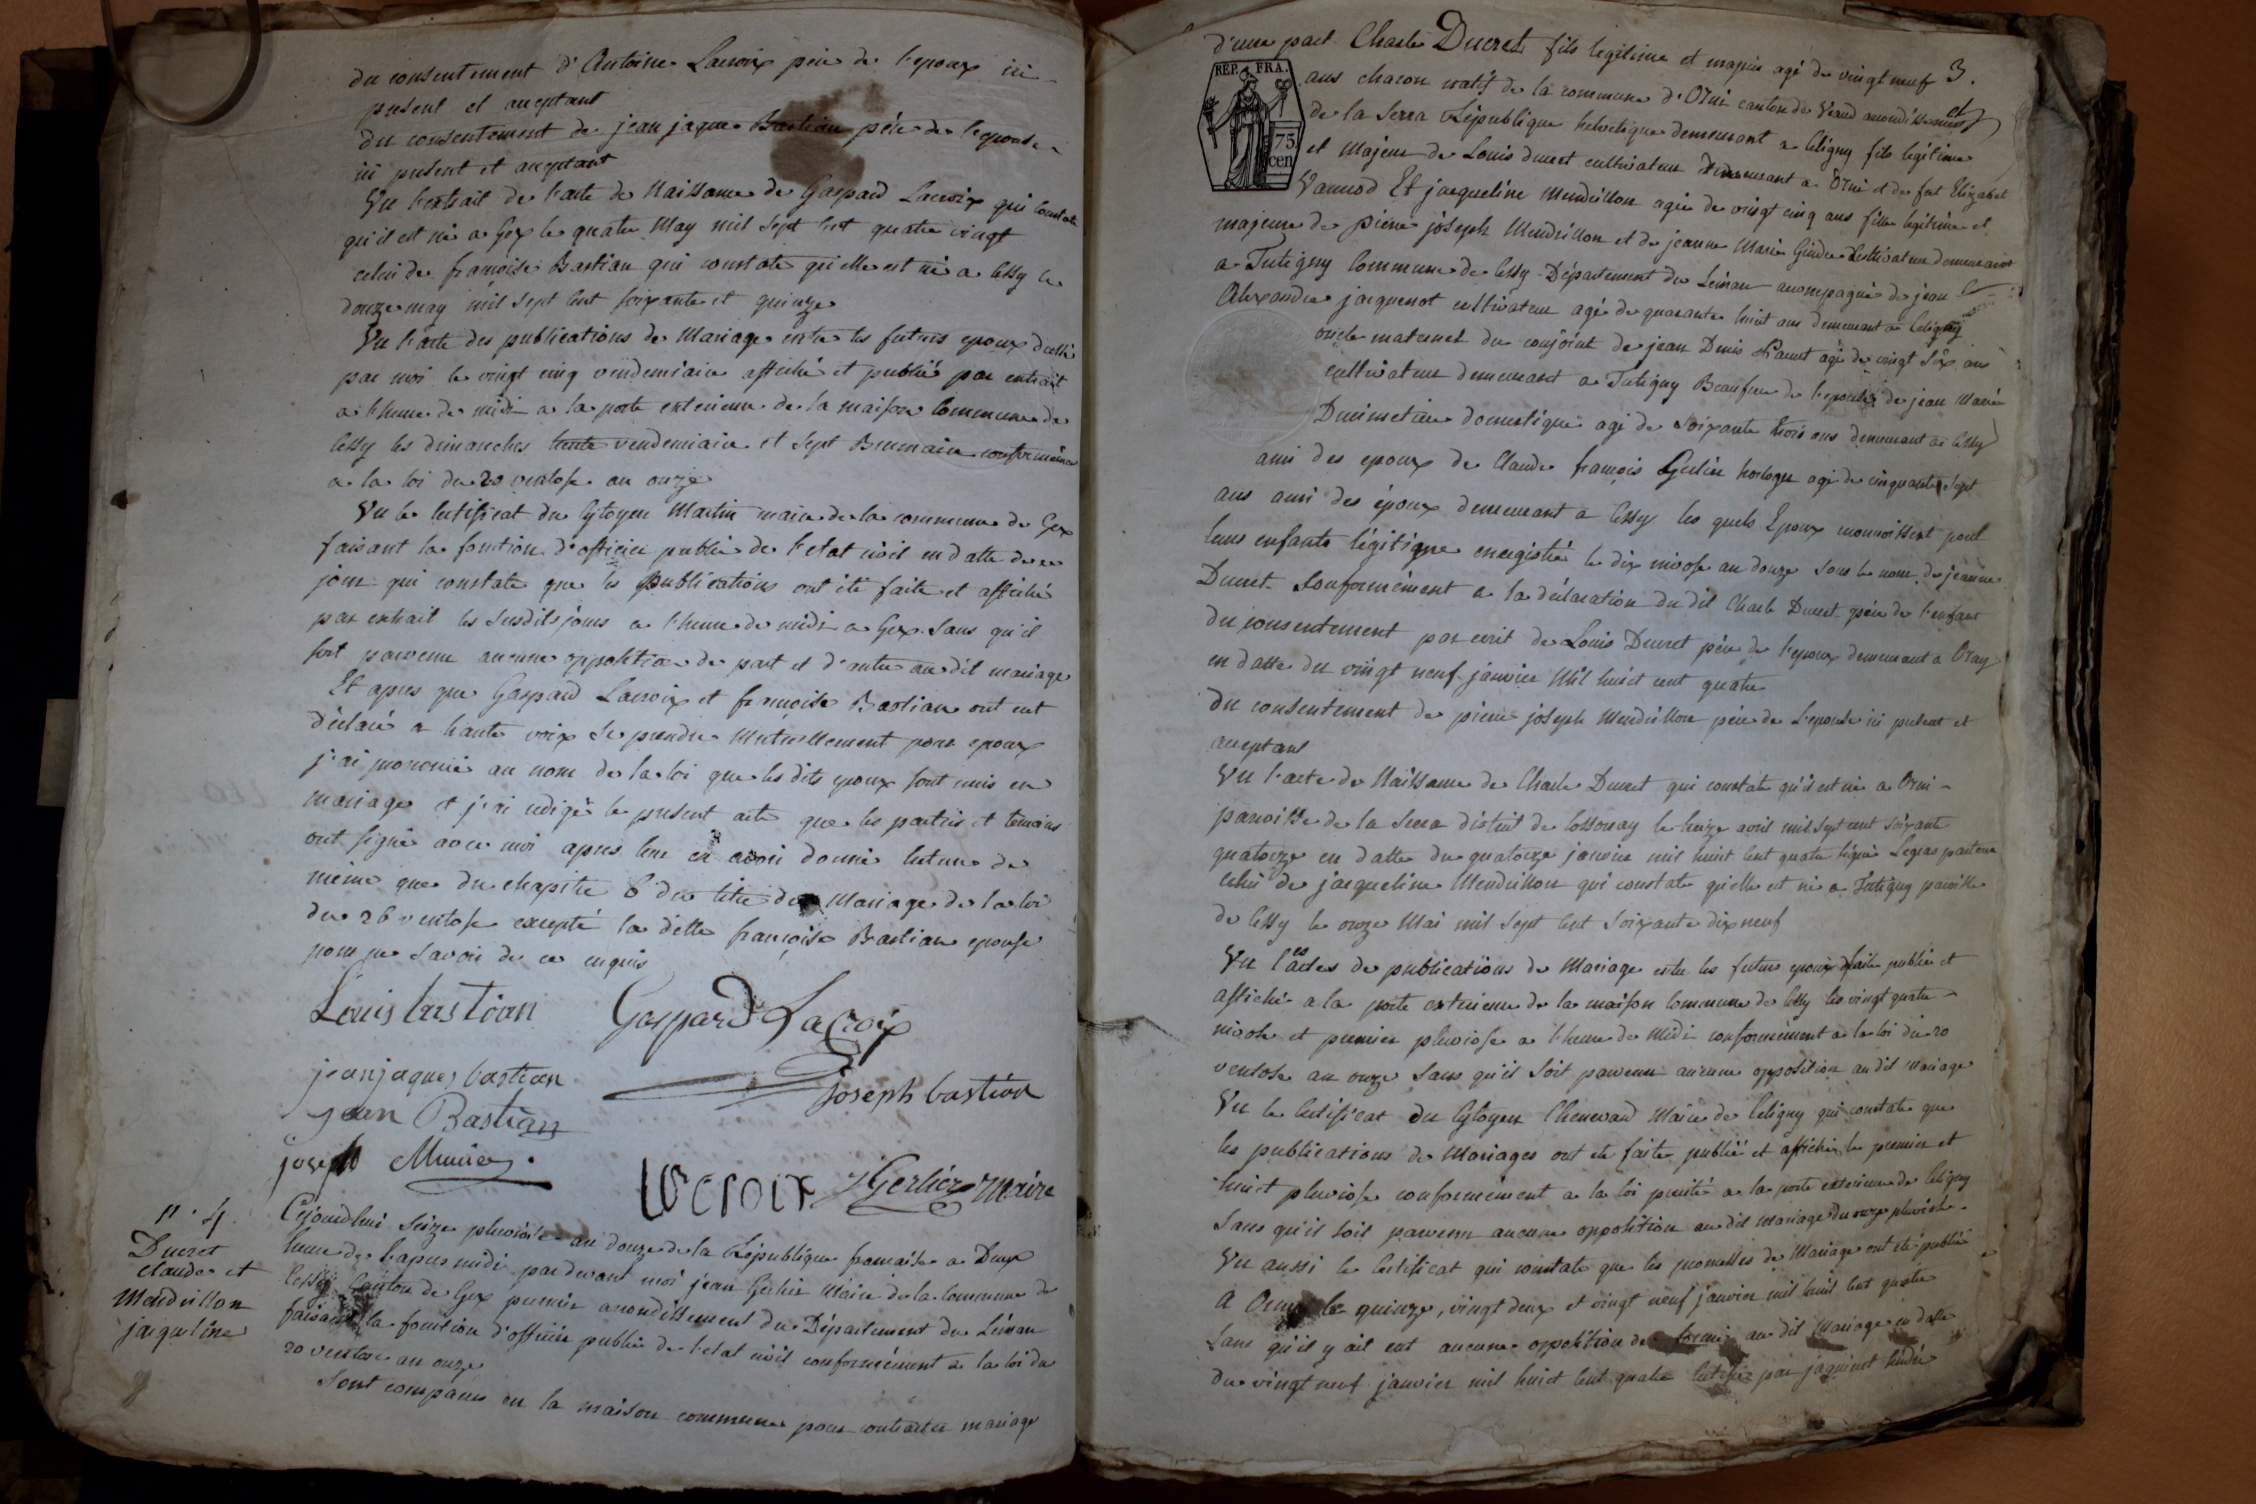 du consentement d'Antoine Lacroix père de l'epoux ici
present et aceptant
du consentement de jean jaque Bastian père de l'epouse
ici present et aceptant
Vu l'extrait de l'acte de Naissance de Gaspard Lacroix qui constate
qu'il est né a Gex le quatre May mil sept cent quatre vingt
celui de françoise Bastian qui constate qu'elle est né a Cessy le
douze may mil sept cent soixante et quinze
Vu l'acte des publications de Mariage entre les futurs epoux
par moi le vingt cinq vendemiaire affiché et publié par extrait
a l'heure de midi a la porte exterieure de la maison commune de
Cessy les dimanches trente vendemiaire et sept Brumaire conformément
a la loi du 20 ventose an onze
Vu le Certificat du Cytoyen Martin maire de la commune de Gex
faisant la fonction d'officier public de l'etat civil en datte de ce
jour qui constate que les publications ont été faite et affiché
par extrait les susdits jours a l'heure de midi a Gex sans qu'il
soit parvenu aucune oppositiion de part et d'autre au dit mariage
Et apres que Gaspard Lacroix et françoise Bastian ont eut
déclaré a haute voix se prendre Mutuellement pour epoux
j'ai prononcé au nom de la loi que les dits epoux sont unis en
mariage et j'ai redigé le present acte que les parties et temoins
ont signé avec moi apres leur en avoir donné lecture de
même que du chapitre 6 du titre du Mariage de la loi
du 26 ventose excepté la ditte françoise Bastian epouse
pour ne savoir de ce enquis
Louis bastian Gaspard LaCroix
jean jaques bastian joseph bastian
jean Bastian
joseph Munier
lacroix J Gerlier maire
n° 4
Ducret
claude et
Mendrillon
jaqueline
Cejourd'hui seize pluviose an douze de la République francaise a Deux
heure de l'apres midi par devant moi jean Gerlier Maire de la Commune de
Cessy Canton de Gex premier arrondissement du Département du Léman
faisant la fonction d'officier public de l'etat civil conformément a la loi du
20 ventose an onze
Sont comparus en la maison commune pour contracter mariage
3
d'une part Charle Ducret fils legitime et majeur agé de vingt neuf
REP. FRA.
75
cen
ans charon natif de la commune d'Orni canton de Veaud arrondissement et
de la Serra République helvetique demeurant a Celigny fils legitime
et Majeur de Louis ducret cultivateur demeurant a Orni et de fut Elizabet
Vannod Et jacqueline Mendrillon agée de vingt cinq ans fille legitime et
majeure de pierre joseph Mendrillon et de jeanne Marie Cultivateur demeurant
a Tutigny Commune de Cessy Département du Léman accompagné de jean
Alexandre jacquenot cultivateur agé de quarante huit ans demeurant a Celigny
oncle maternel du conjoint de jean Denis agé de vingt six ans
cultivateur demeurant a Tutigny Beaufrere de l'epouse de jean Marie
Ducimetiere domestique agé de soixante trois ans demeurant a Cessy
ami des epoux de Claude françois Gerlier horloger agé de cinquante sept
ans ami des époux demeurant a Cessy les quels Epoux reconnoissent pour
leurs enfants légitime enregistré le dix nivose an douze sous le nom de jeanne
Ducret Conformément a la déclaration du dit Charle Ducret père de l'enfant
du consentement par ecrit de Louis Ducret père de l'epoux demeurant a Orny
en datte du vingt neuf janvier Mil huict cent quatre
Du consentement de pierre joseph Mendrillon père de l'epouse ici present et
aceptant
Vu l'acte de Naissance de Charle Ducret qui constate qu'il est né a Orni
paroisse de la Serra district de Cossonay le treize avril mil sept cent soixante
quatorze en datte du quatorze janvier mil huict cent quatre signé Legras pasteur
celui de jacqueline Mendrillon qui constate qu'elle est né a Tutigny paroisse
de Cessy le onze Mai mil sept cent soixante dix neuf
Vu les actes de publications de Mariage entre les futurs epoux faite publié et
affiché a la porte exterieure de la maison commune de Cessy les vingt quatre
nivose et premier pluviose a l'heure de Midi conformément a la loi du 20
ventose an onze sans qu'il soit parvenu aucune opposition au dit Mariage
Vu le Certificat du Cytoyen Chenevard Maire de Celigny qui constate que
les publications de Mariages ont été faite publié et affiché le premier et
huict pluviose conformément a la loi precité a la porte exterieure de Celigny
Sans qu'il soit parvenu aucune opposition au dit Mariage du onze pluviose
Vu aussi le Certificat qui constate que les promesses de Mariage ont été publié
a Orny le quinze, vingt deux et vingt neuf janvier mil huit cent quatre
Sans qu'il y ait eut aucune opposition de formé au dit Mariage en datte
du vingt neuf janvier mil huict cent quatre par